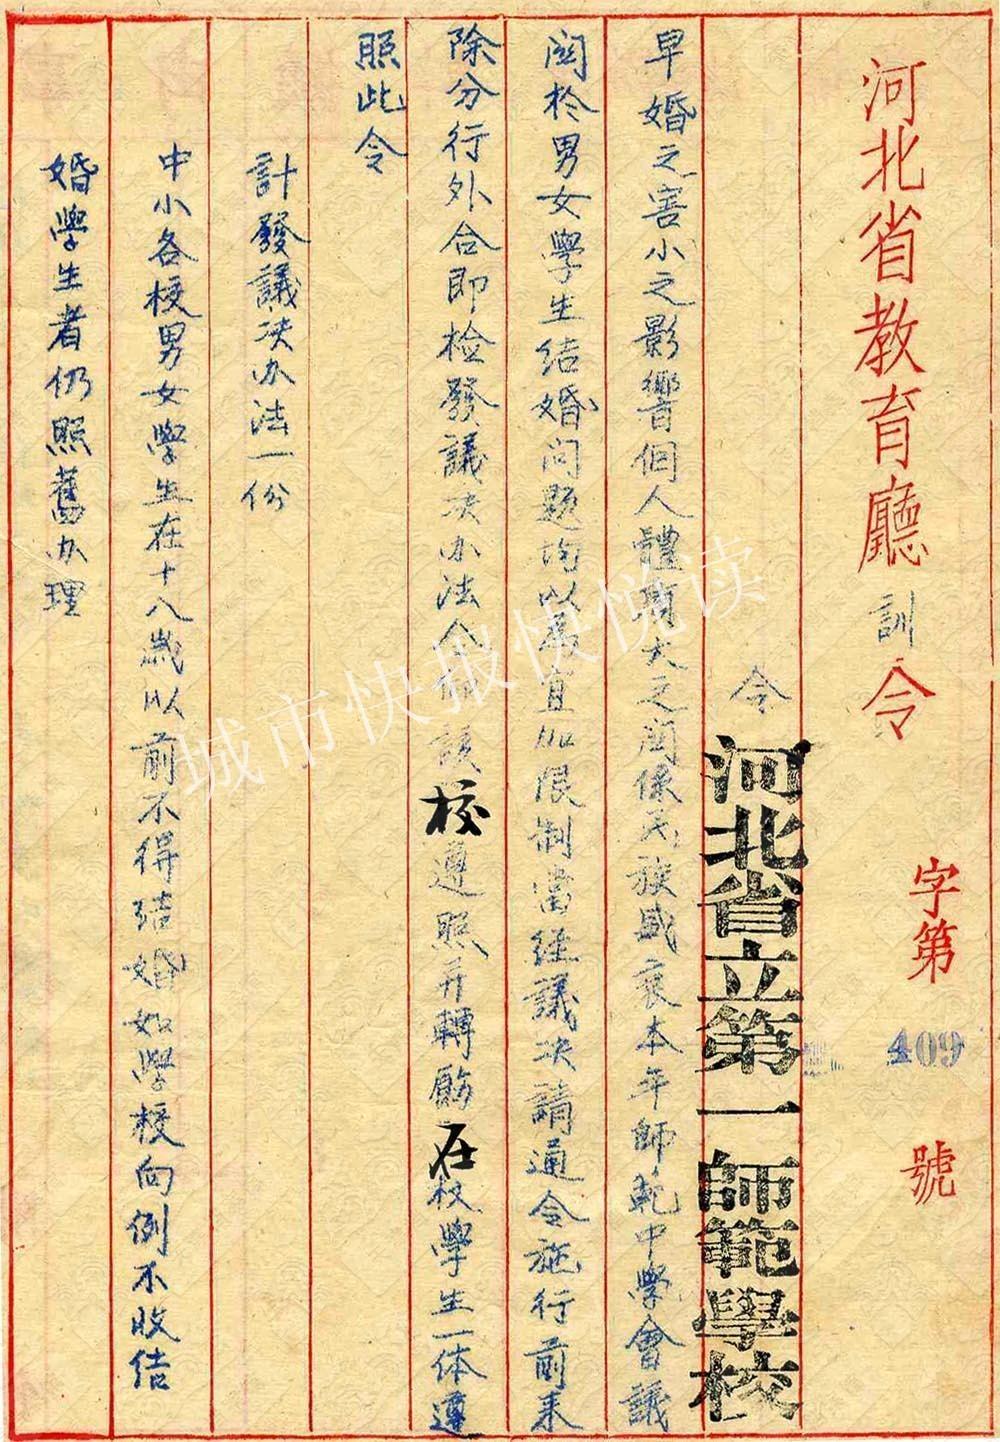 河北省教育廳訓令
字第409號
令河北省立第一師範學校
早婚之害小之影響個人體質大之関係民族盛衰本年師範中學會議
関於男女學生结婚问题均以為宜加限制當経議决請通令施行前来
除分行外合即检發議决办法令仰該校遵照并轉飭在校學生一体遵
照此令
計發議决办法一份
中小各校男女學生在十八歲以前不得结婚如學校向例不收结
婚學生者仍照舊办理
城市快报快悦读